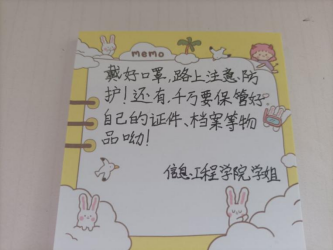 memo
戴好口罩,路上注意防
护!还有,千万要保管好
自己的证件、档案等物
品呦!
信息工程学院学姐